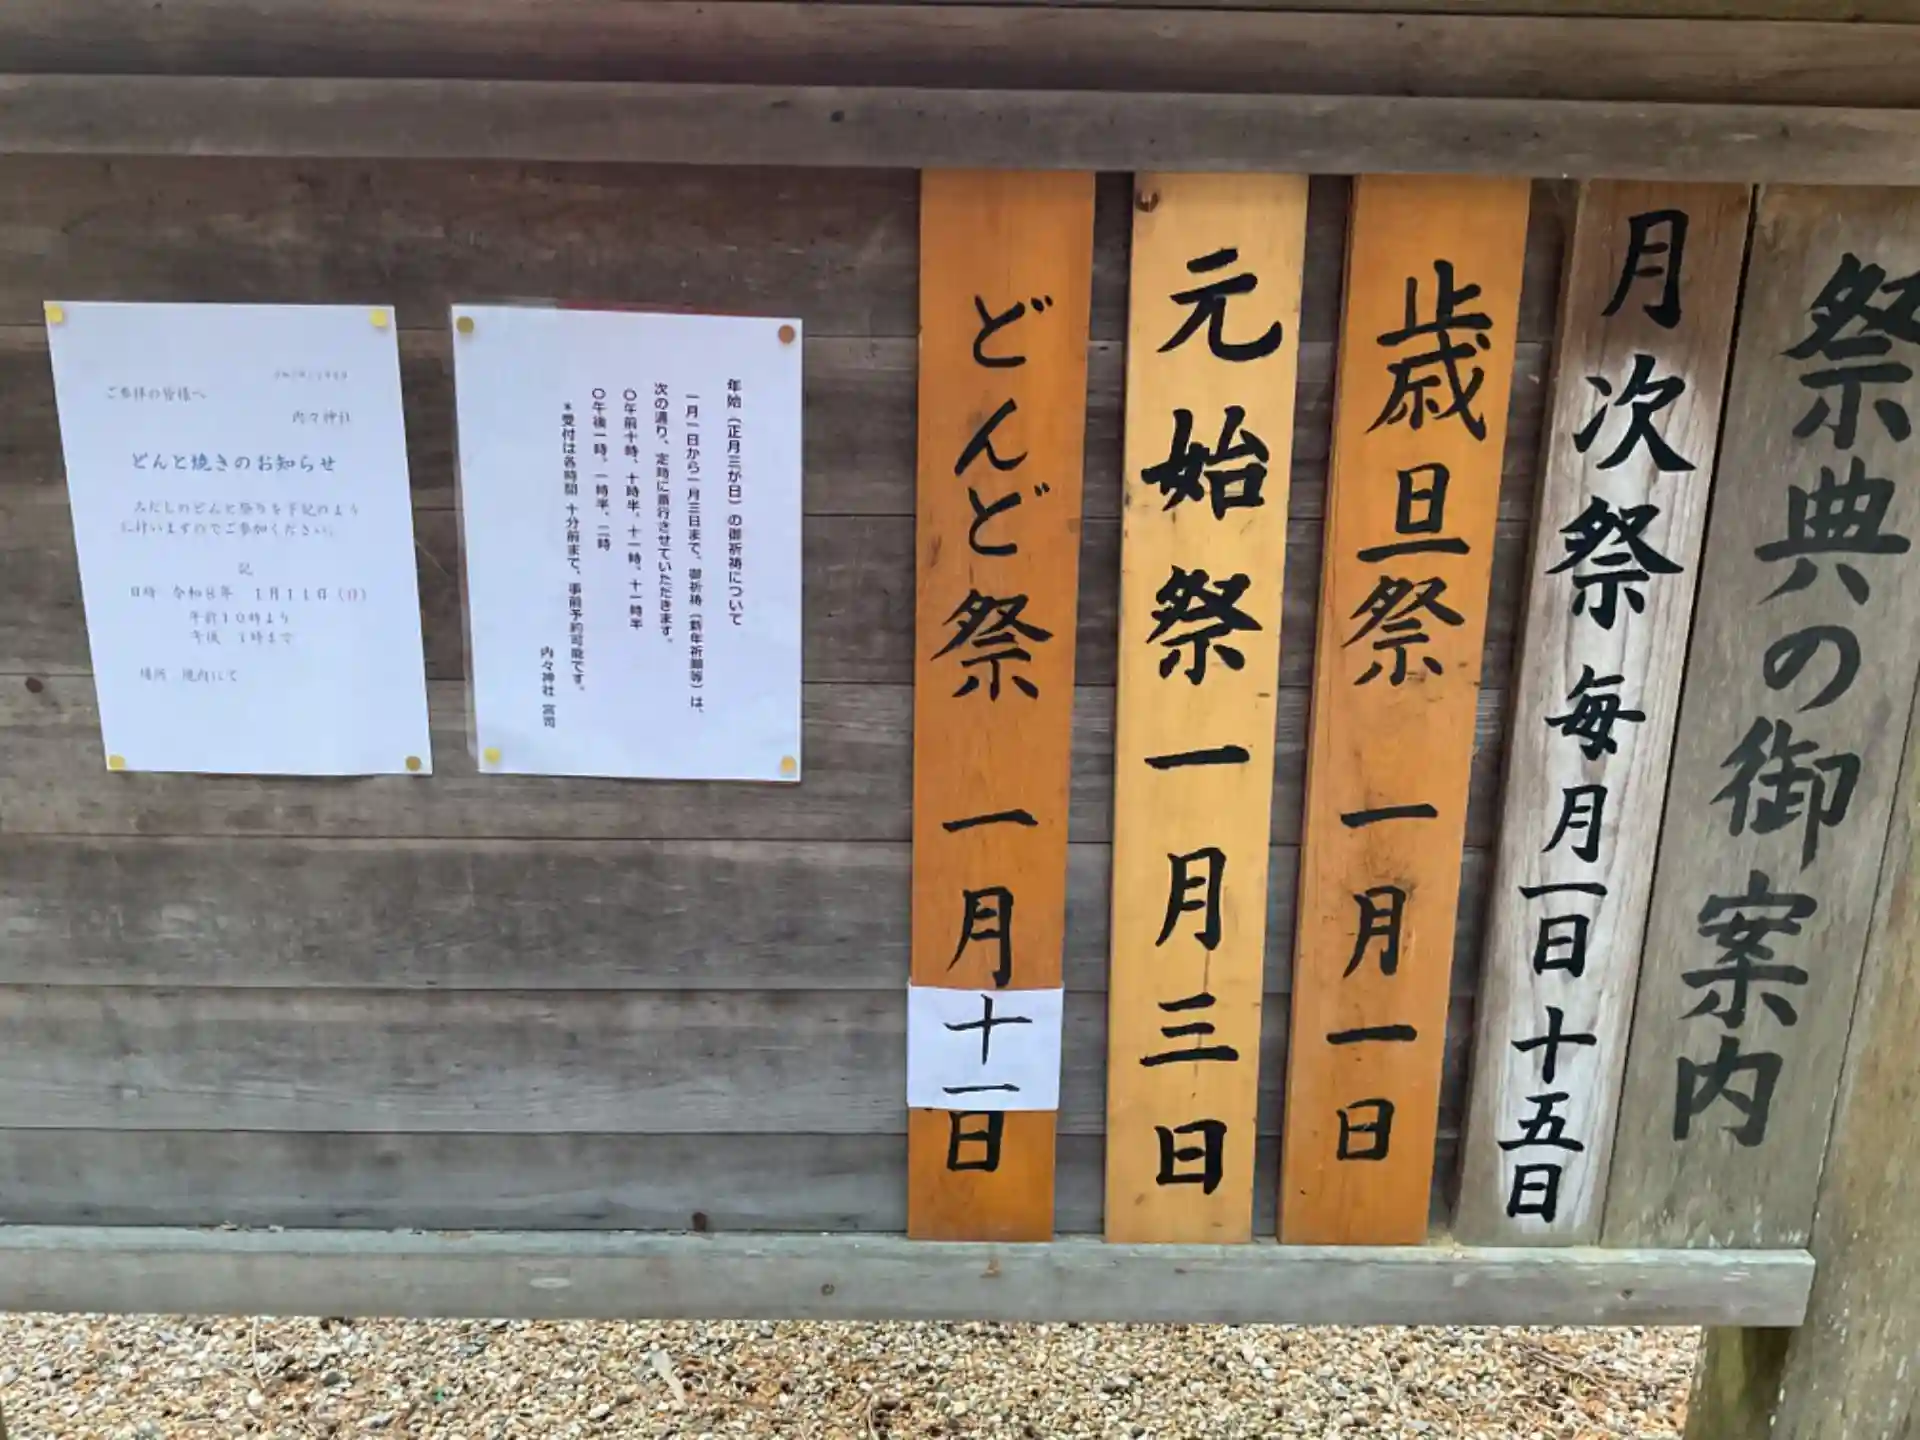 祭典の御案内
月次祭 毎月一日 十五日
歳旦祭 一月一日
元始祭 一月三日
どんど祭 一月十一日
年始（正月三が日）の御祈祷について
一月一日から一月三日まで、御祈祷（新年祈願等）は、
次の通り、定時に斎行させていただきます。
〇午前十時、十時半、十一時、十一時半
〇午後一時、一時半、二時
＊受付は各時間 十分前まで、事前予約可能です。
内々神社 宮司
ご参拝の皆様へ
内々神社
どんと焼きのお知らせ
のどんと祭りを下記のよう
に行いますのでご参加ください。
記
日時 令和８年 １月１１日（日）
午前１０時より
午後 １時まで
場所 境内にて